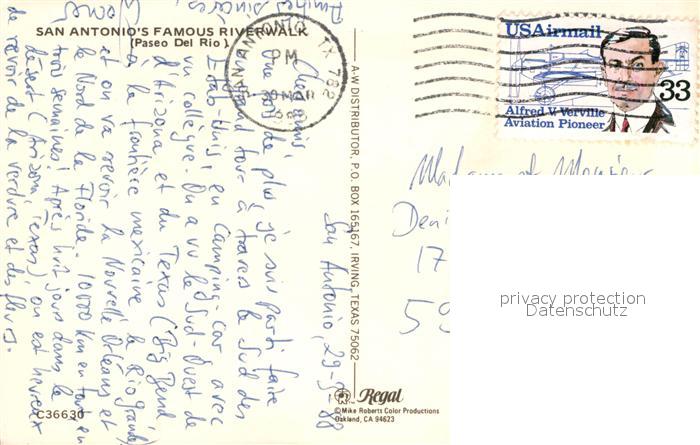 SAN ANTONIO'S FAMOUS RIVERWALK
(Paseo Del Rio)
SAN ANTONIO TX 782
PM
30 MAR
USAirmail
33
Alfred V. Verville
Aviation Pioneer
San Antonio, 29-3-88
Chers amis,
Une fois de plus je suis parti faire
un grand tour à travers le Sud des
Etats-Unis, en Camping-car avec
un collègue. On a vu le Sud-Ouest de
l'Arizona et du Texas (Big Bend
à la frontière mexicaine, le Rio Grande)
et on va revoir la Nouvelle Orléans et
le Nord de la Floride. 10000 km en tout en
trois semaines! Après huit jours dans le
désert (Arizona, Texas) on est heureux
de revoir de la verdure et des fleurs.
Amitiés sincères
Madame et Monsieur
Deni
17
59
A-W DISTRIBUTOR, P.O. BOX 165167, IRVING, TEXAS 75062
privacy protection
Datenschutz
Regal
©Mike Roberts Color Productions
Oakland, CA 94623
C36630